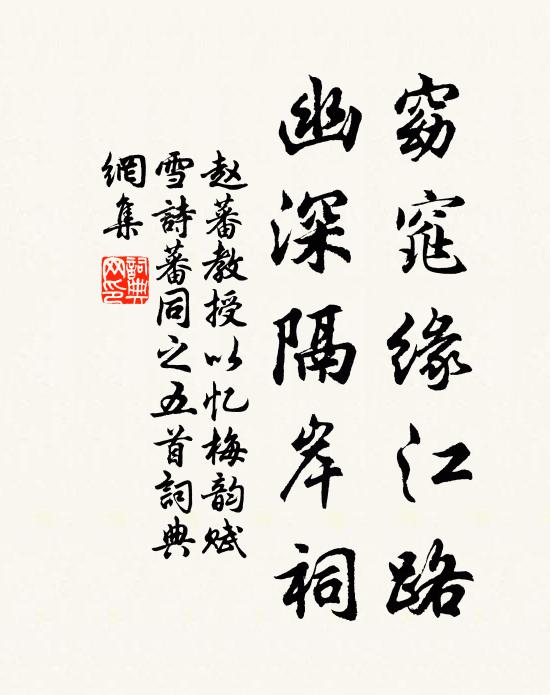 窈窕缘江路
幽深隔岸祠
赵蕃教授以忆梅韵赋
雪詩蕃同之五首詞典
網集
詞典網印